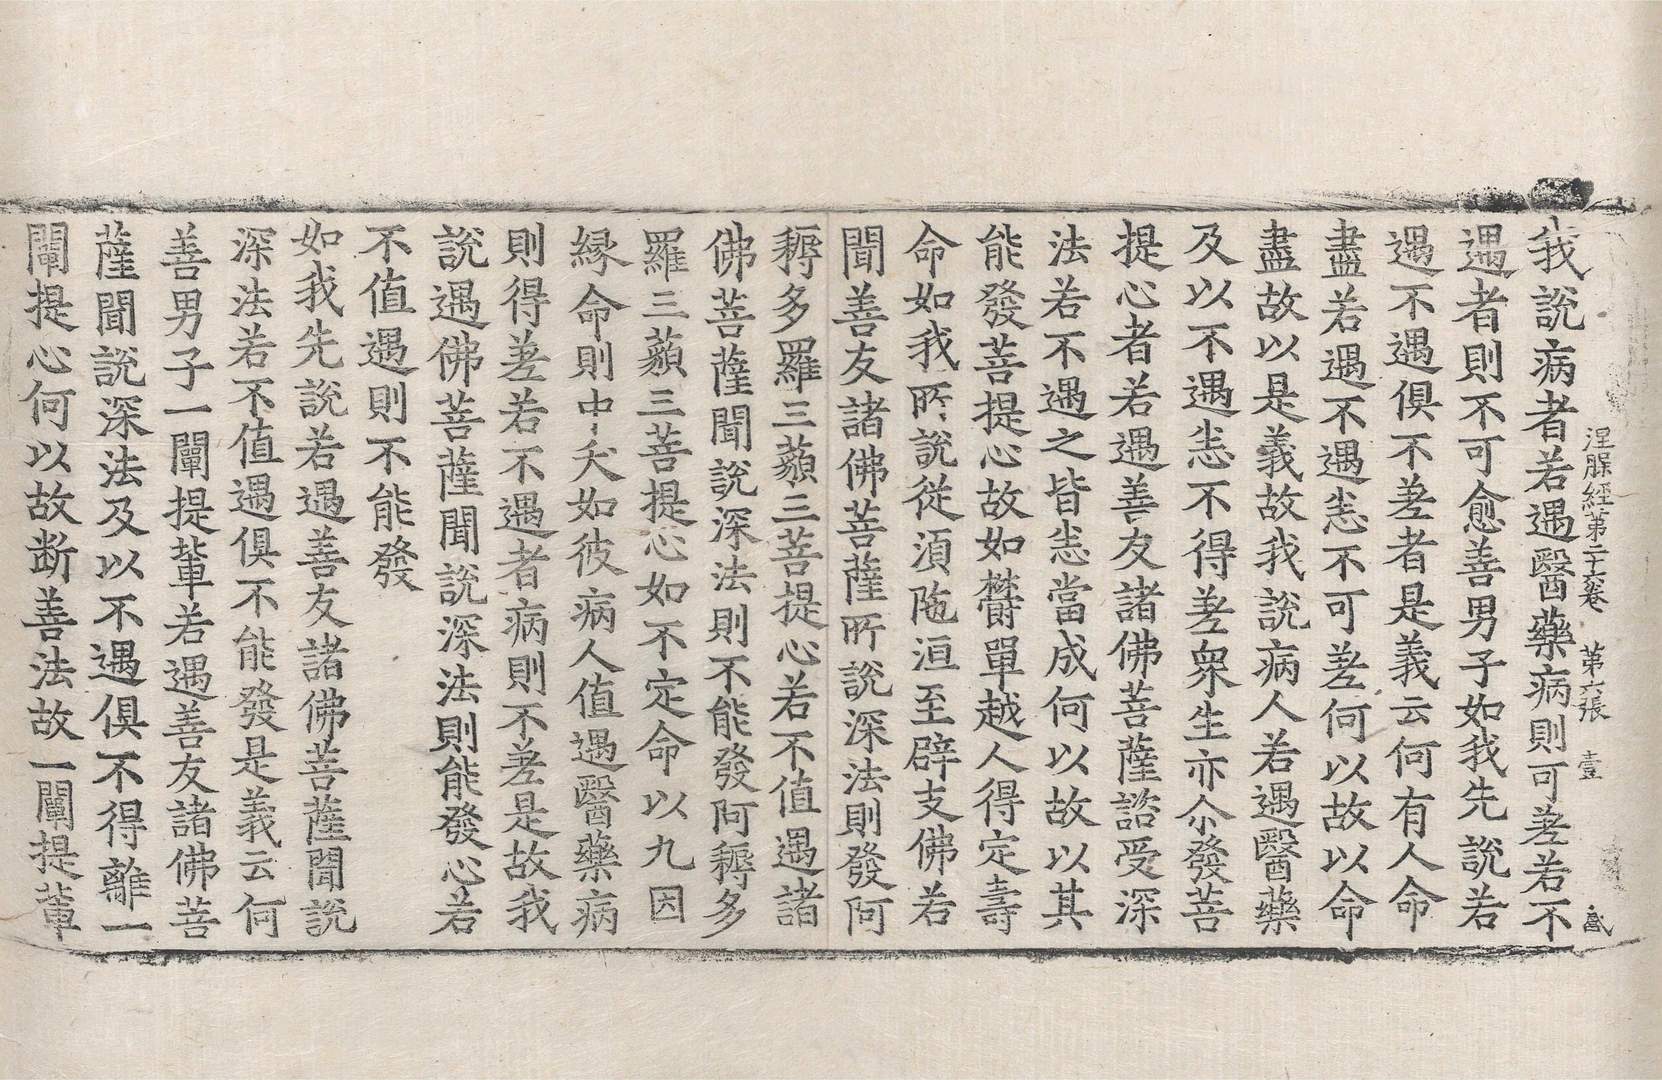 涅槃經第二十六卷　第九張　壹
我說病者若遇醫藥病則可差若不
遇者則不可愈善男子如我先說若
遇不遇俱不差者是義云何有人命
盡若遇不遇悉不可差何以故以命
盡故以是義故我說病人若遇醫藥
及以不遇悉不得差衆生亦尒發菩
提心者若遇善友諸佛菩薩諮受深
法若不遇之皆悉當成何以故以其
能發菩提心故如欝單越人得定壽
命如我所說從湏陁洹至辟支佛若
聞善友諸佛菩薩所說深法則發阿
耨多羅三藐三菩提心若不值遇諸
佛菩薩聞說深法則不能發阿耨多
羅三藐三菩提心如不定命以九因
緣命則中夭如彼病人值遇醫藥病
則得差若不遇者病則不差是故我
說遇佛菩薩聞說深法則能發心若
不值遇則不能發
如我先說若遇善友諸佛菩薩聞說
深法若不值遇俱不能發是義云何
善男子一闡提軰若遇善友諸佛菩
薩聞說深法及以不遇俱不得離一
闡提心何以故断善法故一闡提軰